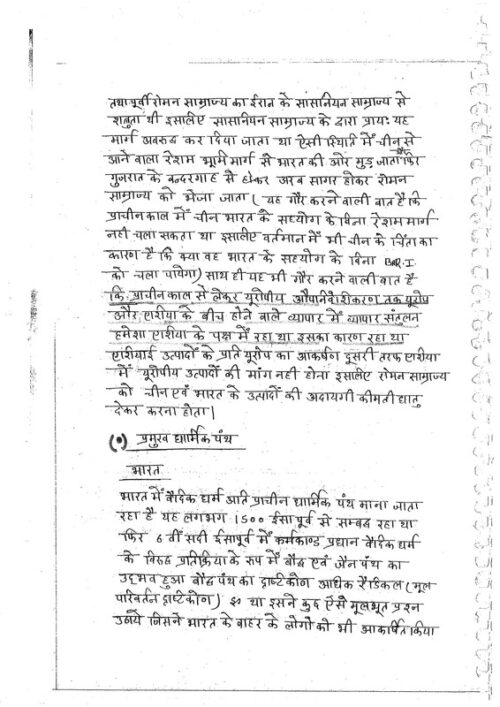 तथा पूर्वी रोमन साम्राज्य का ईरान के सासानियन साम्राज्य से
शत्रुता थी इसलिए सासानियन साम्राज्य के द्वारा प्राय: यह
मार्ग अवरुद्ध कर दिया जाता था ऐसी स्थिति में चीन से
आने वाला रेशम भूमि मार्ग से भारत की ओर मुड़ जाता फिर
गुजरात के बन्दरगाह से होकर अरब सागर होकर रोमन
साम्राज्य को भेजा जाता। यह गौर करने वाली बात है कि
प्राचीन काल में चीन भारत के सहयोग के बिना रेशम मार्ग
नही चला सकता था इसलिए वर्तमान में भी चीन के चिंता का
कारण है कि क्या वह भारत के सहयोग के बिना B.R.I.
को चला पायेगा) साथ ही यह भी गौर करने वाली बात है
कि प्राचीन काल से लेकर यूरोपीय औपनिवेशीकरण तक यूरोप
और एशीया के बीच होने वाले व्यापार में व्यापार संतुलन
हमेशा एशीया के पक्ष में रहा था इसका कारण रहा था
एशीयाई उत्पादों के प्रति यूरोप का आकर्षण दूसरी तरफ एशीया
में यूरोपीय उत्पादों की मांग नही होना इसलिए रोमन साम्राज्य
को चीन एवं भारत के उत्पादों की अदायगी कीमती धातु
देकर करना होता।
(•) प्रमुख धार्मिक पंथ
भारत
भारत में वैदिक धर्म अति प्राचीन धार्मिक पंथ माना जाता
रहा है यह लगभग 1500 ईसा पूर्व से सम्बद्ध रहा था
फिर 6 वीं सदी ईसापूर्व में कर्मकाण्ड प्रधान वैदिक धर्म
के विरुद्ध प्रतिक्रिया के रूप में बौद्ध एवं जैन पंथ का
उद्भव हुआ बौद्ध पंथ का दृष्टिकोण अधिक रैडिकल (मूल
परिवर्तन दृष्टिकोण) था इसने कुछ ऐसे मूलभूत प्रश्न
उठाये जिसने भारत के बाहर के लोगों को भी आकर्षित किया